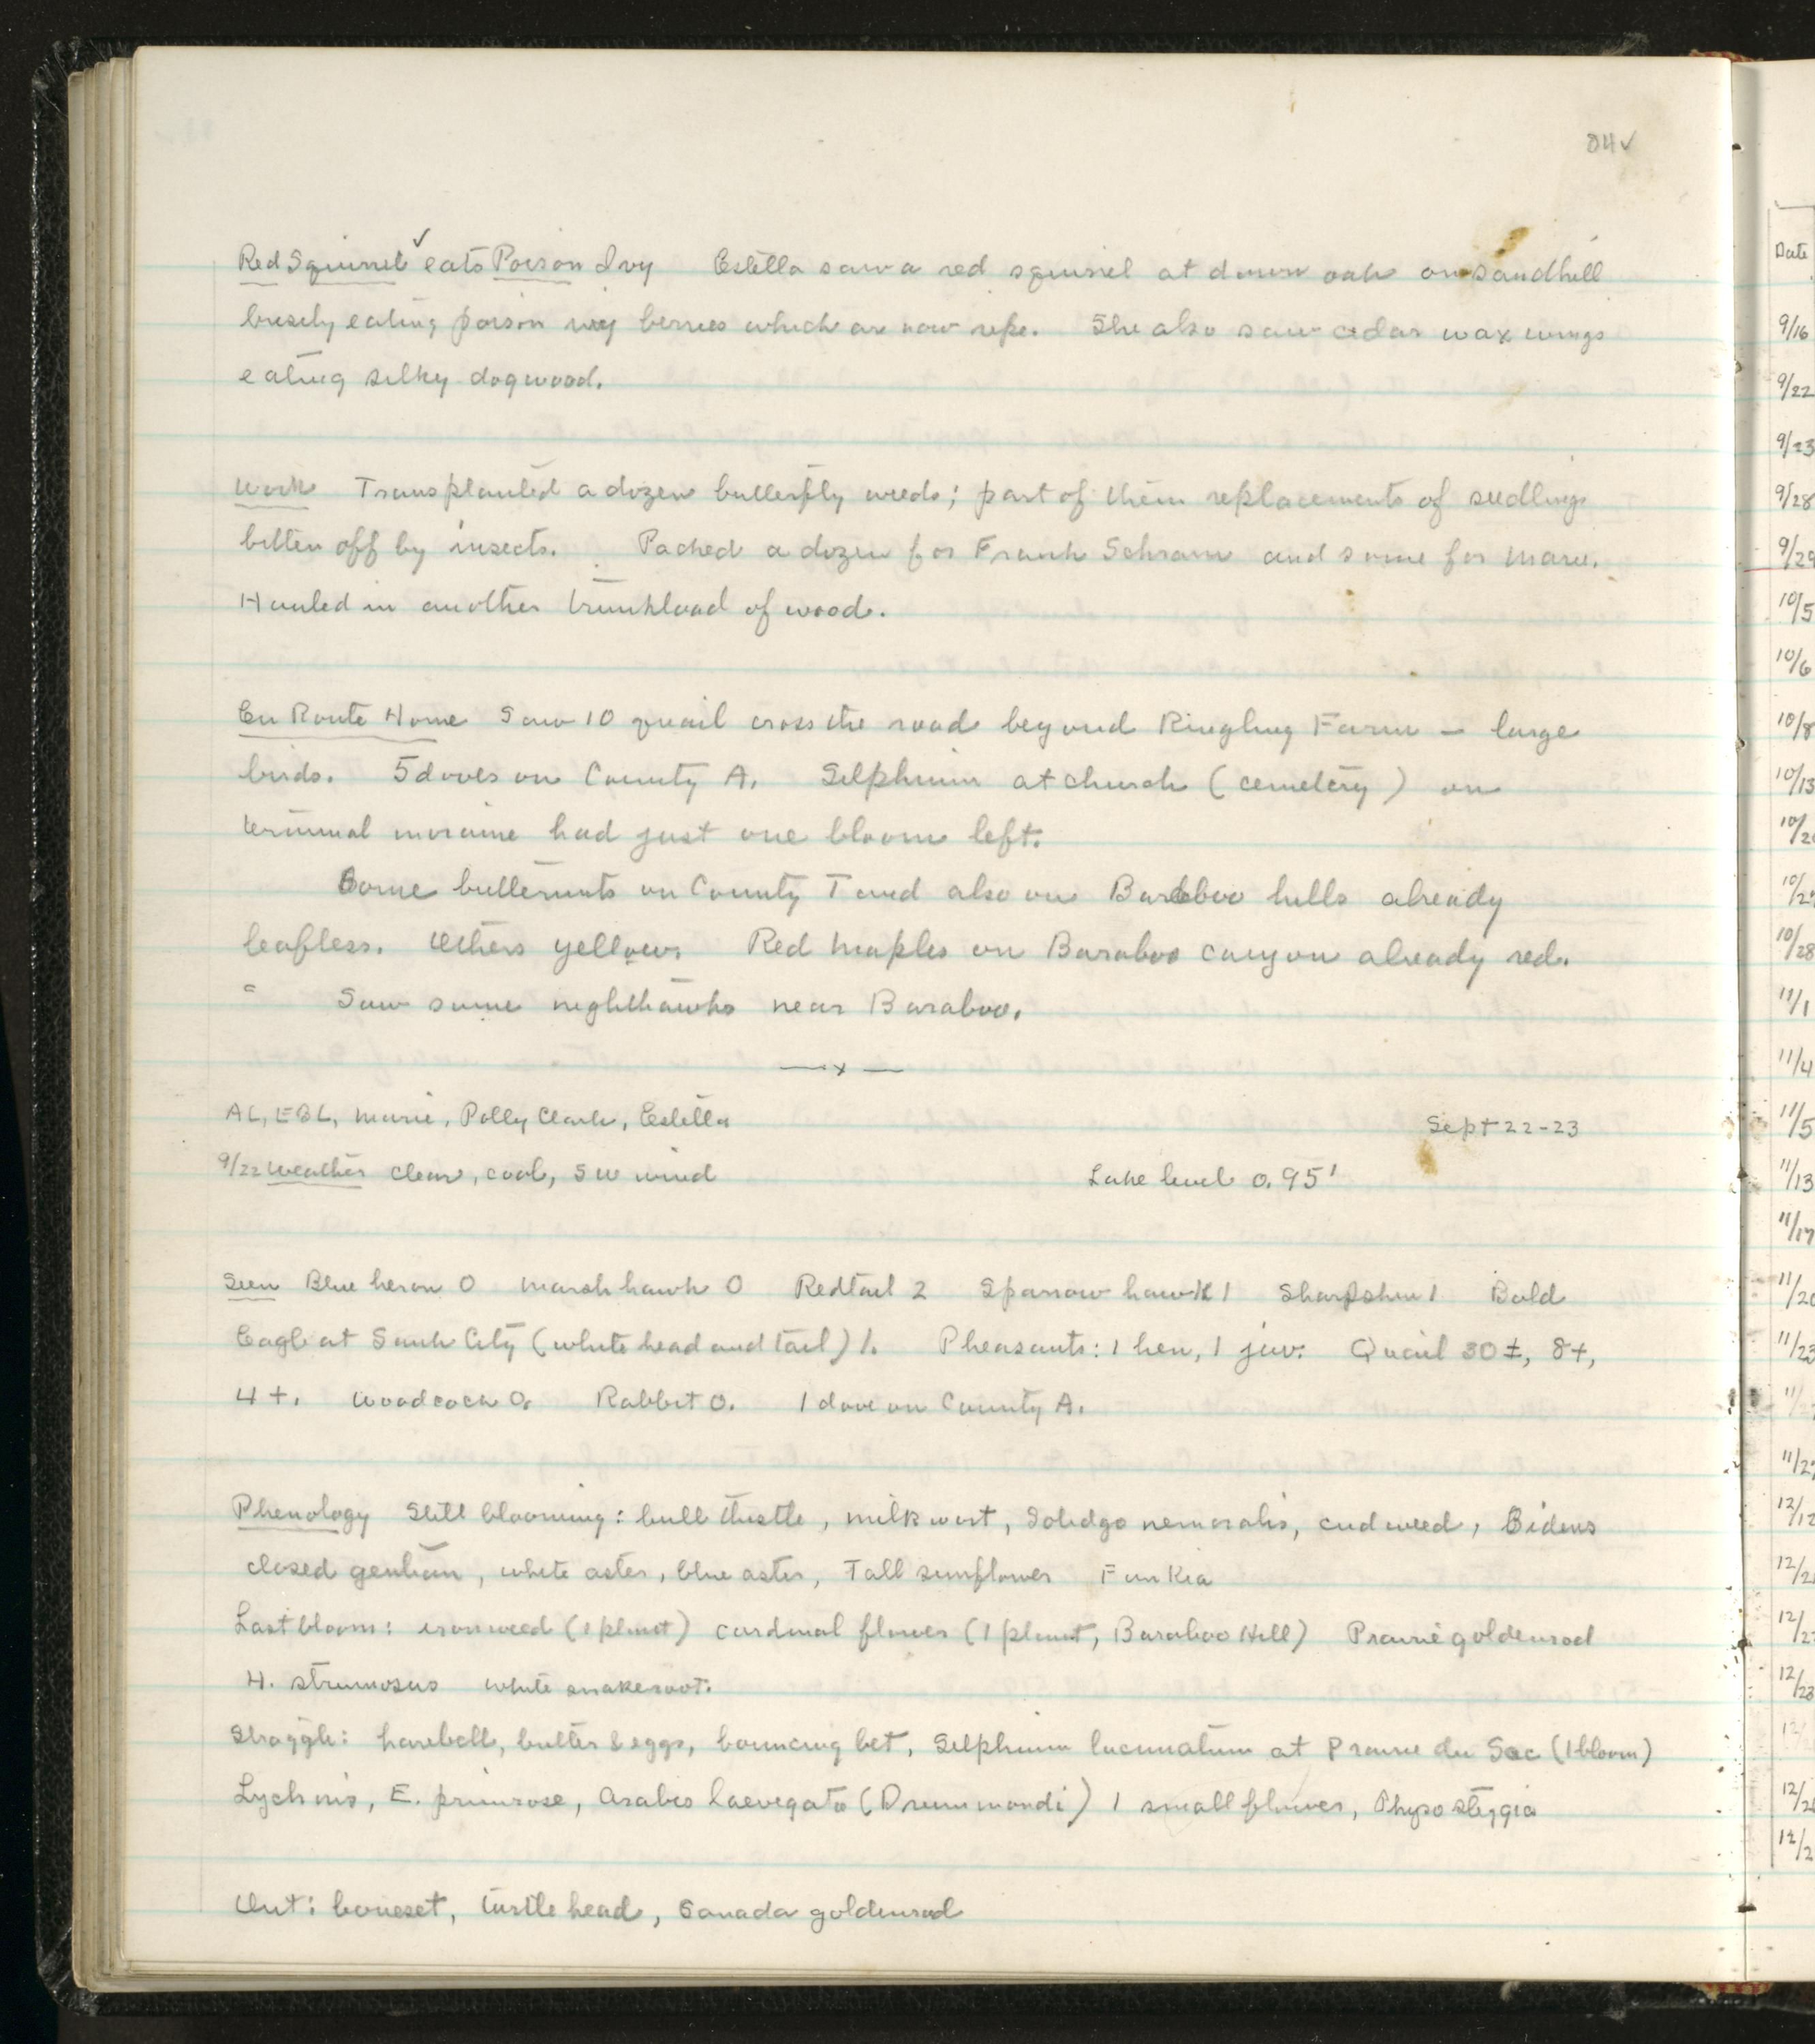 84✓
Red Squirrel ✓ eats Poison Ivy Estella saw a red squirrel at down oak on sandhill
busily eating poison ivy berries which are now ripe. She also saw cedar wax wings
eating silky dogwood.
Work Transplanted a dozen butterfly weeds; part of them replacements of seedlings
bitten off by insects. Packed a dozen for Frank Schram and some for Marie.
Hauled in another trunkload of wood.
En Route Home Saw 10 quail cross the road beyond Ringling Farm – large
birds. 5 doves on County A. Silphium at church (cemetery) on
terminal moraine had just one bloom left.
Some butternuts on County T and also on Baraboo hills already
leafless. Others yellow. Red maples on Baraboo canyon already red.
Saw some nighthawks near Baraboo.
—x—
AL, EBL, Marie, Polly Clark, Estella
Sept 22-23
9/22 Weather clear, cool, SW wind Lake level 0.95'
Seen Blue heron 0 Marsh hawk 0 Redtail 2 Sparrow hawk 1 Sharpshin 1 Bald
Eagle at Sauk City (white head and tail) 1. Pheasants: 1 hen, 1 juv. Quail 30±, 8+,
4+. Woodcock 0. Rabbit 0. 1 dove on County A.
Phenology Still blooming: bull thistle, milkwort, Solidgo nemoralis, cudweed, Bidens
closed gentian, white aster, blue aster, Tall sunflower Funkia
Last bloom: ironweed (1 plant) cardinal flower (1 plant, Baraboo Hill) Prairie goldenrod
H. strumosus white snakeroot.
Straggle: harebell, butter & eggs, bouncing bet, Silphium lacinatum at Prairie du Sac (1 bloom)
Lychnis, E. primrose, Arabis laevigata (Drummondi) 1 small flower, Physostegia
Out: boneset, turtle head, Canada goldenrod
Date
9/16
9/22
9/23
9/28
9/29
10/5
10/6
10/8
10/13
10/28
11/1
11/4
11/5
11/13
11/17
11/20
11/23
12/12
12/23